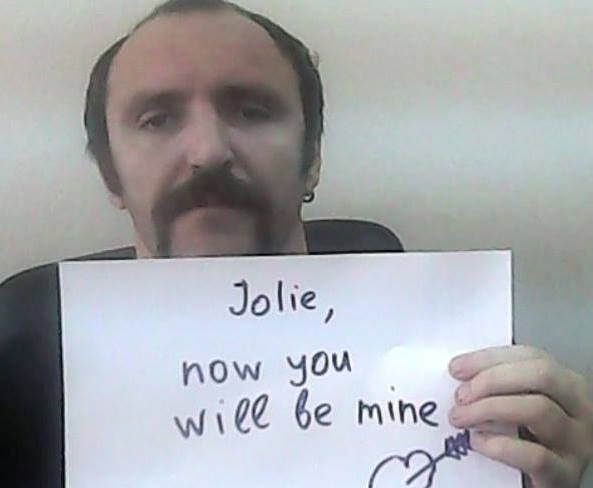 Jolie,
now you
will be mine